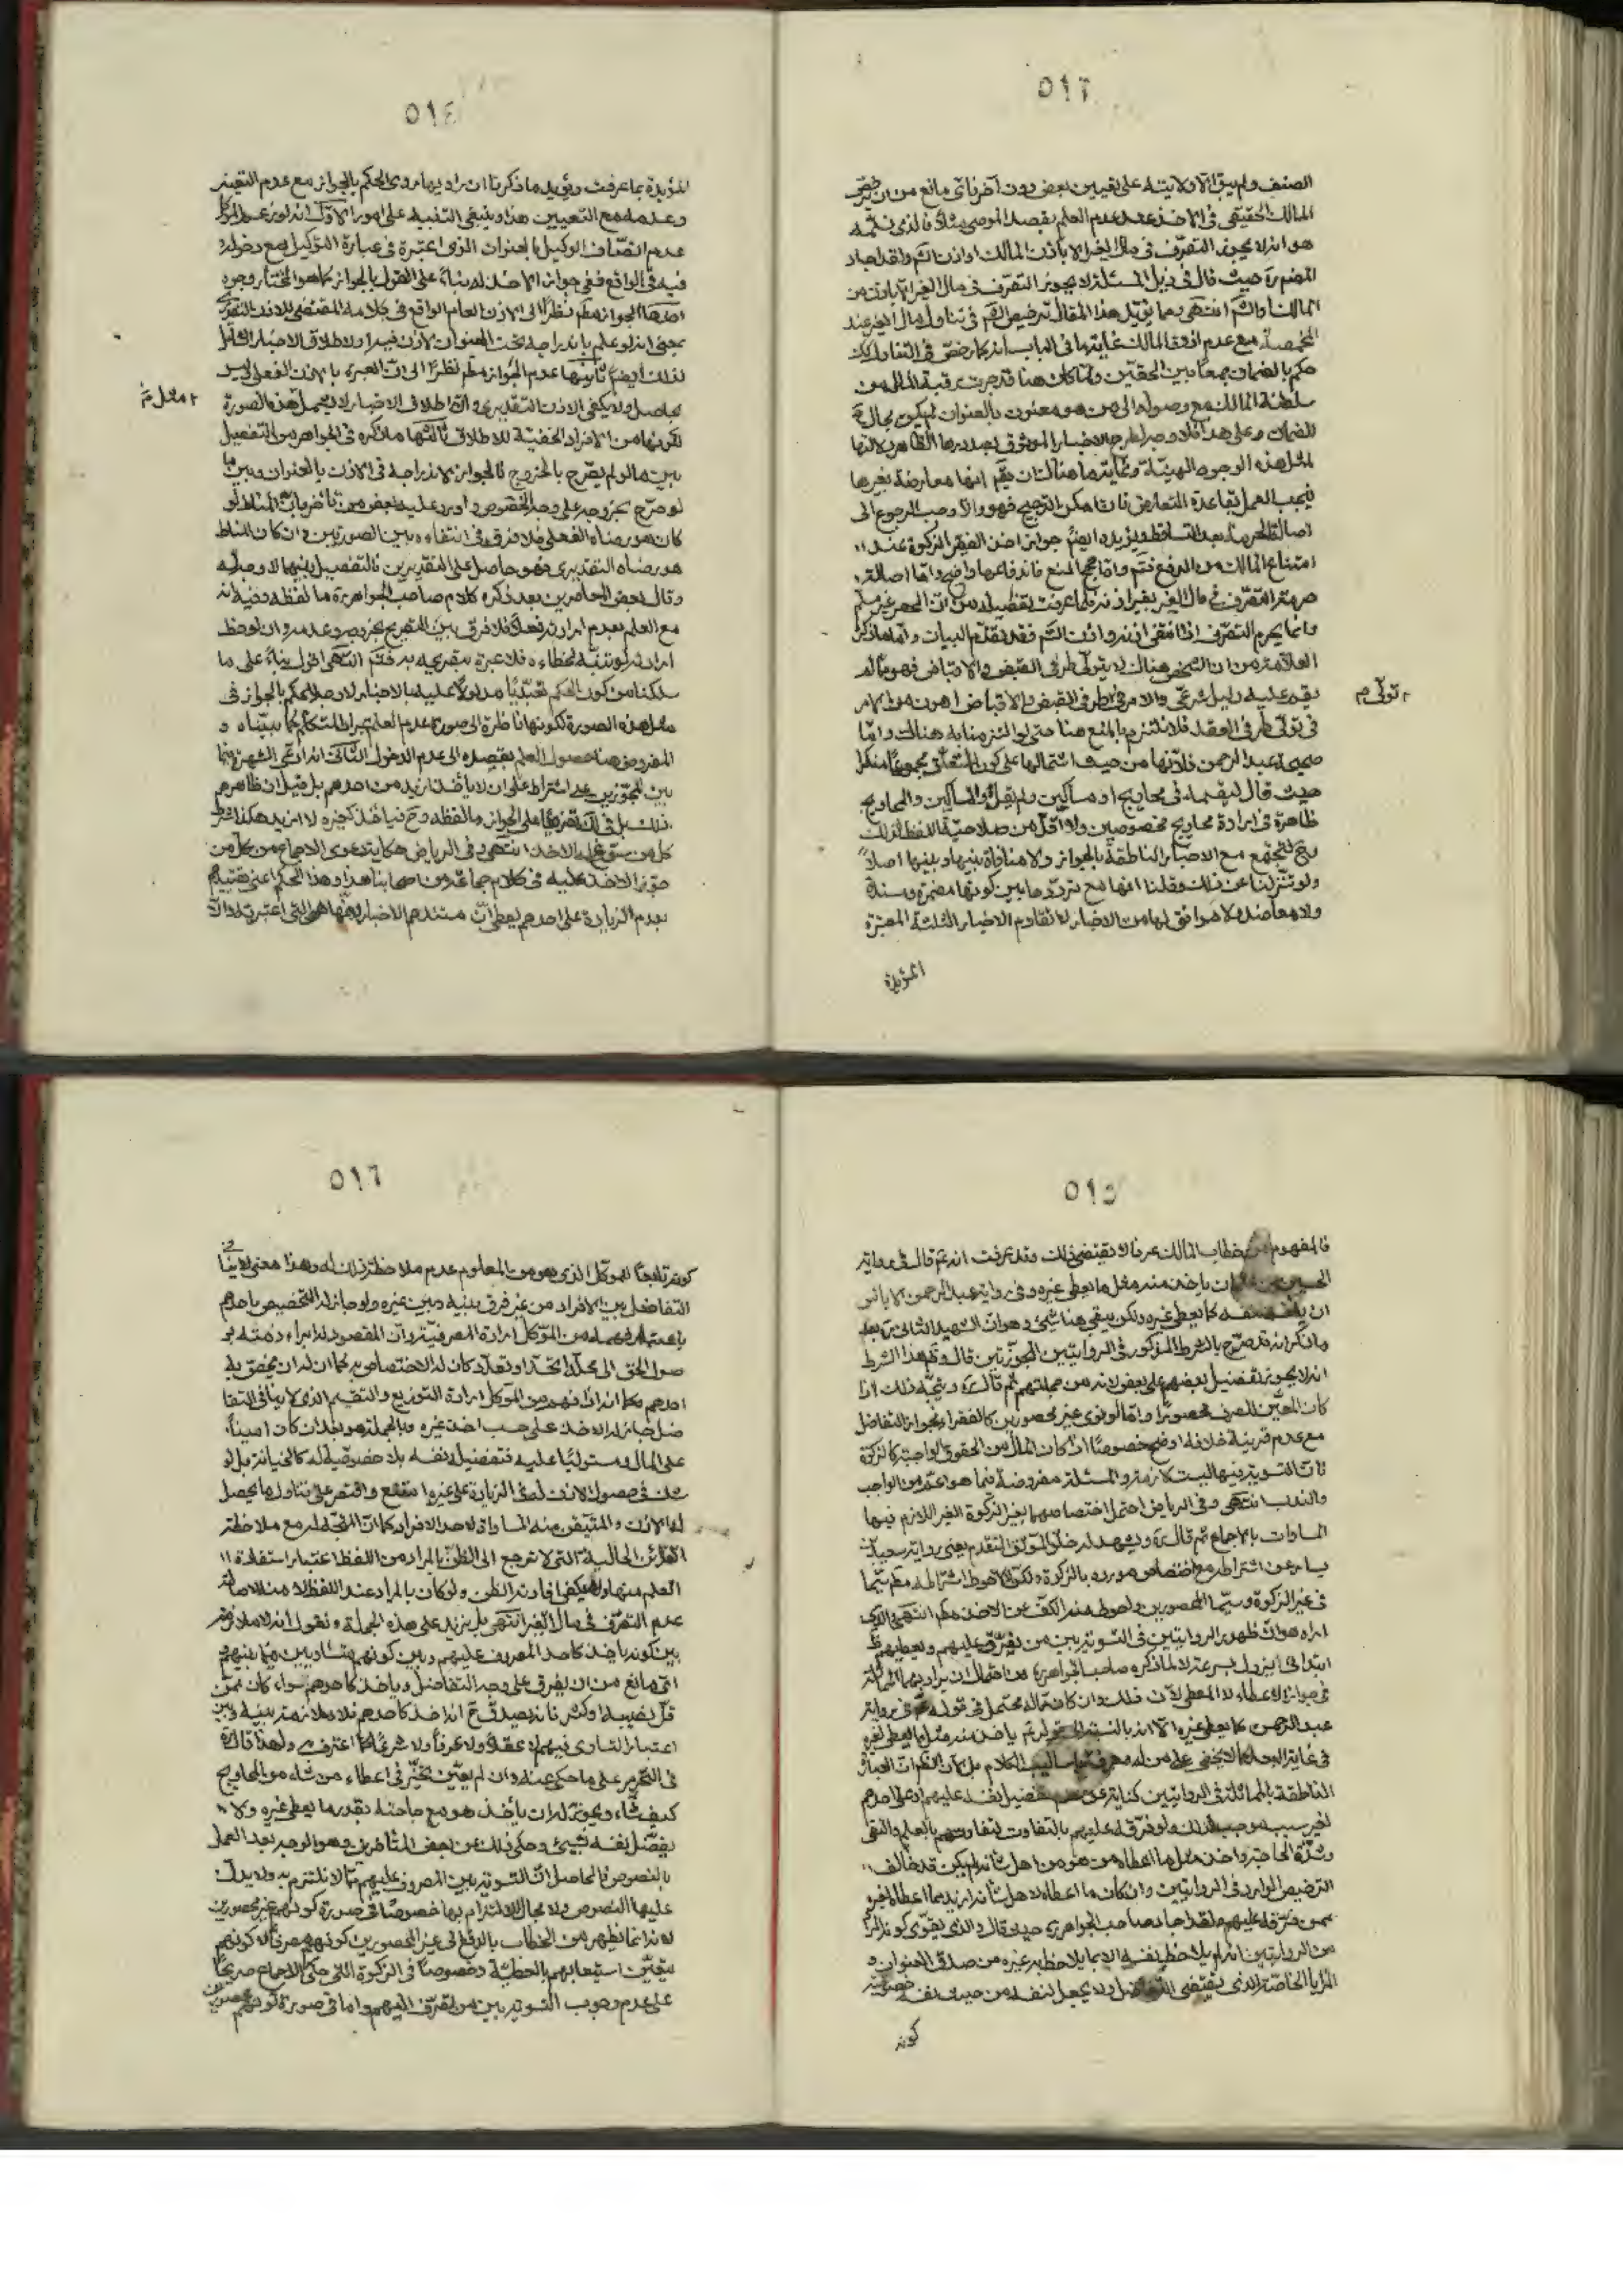 ٥١٣
الصنف ولم يبق الا ولايته على تعيين بعض دون آخر فاى مانع من ان يرخص
المالك الحقيقى فى الاخذ عند عدم العلم بقصد الموصى مثلا فالذى نلتزمه
هو انه لا يجوز التصرف فى مال الغير الا باذن المالك او اذن الشم ولقد اجاد
المصنف ره حيث قال فى ذيل المسئلة لا يجوز التصرف فى مال الغير الا باذن من
المالك او الشم انتهى ومما يؤيد هذا المقال ترخيص الشم فى تناول مال الغير عند
المخمصة مع عدم اذن المالك غاية ما فى الباب انه كما رخص فى التناول كك
حكم بالضمان جمعا بين الحقين ولما كان هنا قد خرجت رقبة المال من
سلطنة المالك مع وصوله الى من هو معنون بالعنوان لم يكن مجال
للضمان وعلى هذا فلا وجه لطرح الاخبار الموثوق بصدورها الظاهر دلالتها
لمثل هذه الوجوه الهينة وغاية ما هناك ان يقم انها معارضة بغيرها
فيجب العمل بقاعدة التعارض فان امكن الترجيح فهو والا وجب الرجوع الى
اصالة الحرمة بعد التساقط ويؤيده ايضا جواز اخذ الفقير الزكوة عند
امتناع المالك من الدفع فتم واما حجج المنع فاندفاعها واضح واما اصالة
حرمة التصرف فى مال الغير بغير اذنه فلما عرفت تفصيله من ان الحصر غير مسلم
وانما يحرم التصرف اذا انتفى اذنه واذن الشم فقد تقدم البيان واما ما ذكره
العلامة ره من ان الشخص هناك لا يتولى طرفى القبض والاقباض فهو مما لم
يقم عليه دليل شرعى والامر فى طرفى القبض والاقباض اهون من الامر
فى تولى طرفى العقد فلا نلتزم بالمنع هنا حتى لو التزمنا به هناك واما
صحيحة عبد الرحمن فلانها من حيث اشتمالها على كون المتعلق مجموعا منكرا
حيث قال ليقسمه فى محاويج او مساكين ولم يقل والمساكين والمحاويج
ظاهرة فى ارادة محاويج مخصوصين ولا اقل من صلاحية اللفظ لذلك
وح تجتمع مع الاخبار الناطقة بالجواز ولا منافاة بينها وبينها اصلا
ولو تنزلنا عن ذلك وقلنا انها مع ترددها بين كونها مضمرة ومسندة
ولا معاضد ولا موافق لها من الاخبار لا تقاوم الاخبار الثلثة المعتبرة
المؤيدة
تولى م
٥١٤
المؤيدة بما عرفت ويؤيد ما ذكرنا ان راويها روى الحكم بالجواز مع عدم التعيين
وعدمه مع التعيين هذا وينبغى التنبيه على امور الاول انه لو زعم الموكل
عدم اتصاف الوكيل بالعنوان الذى اعتبره فى عبارة التوكيل مع دخوله
فيه فى الواقع ففى جواز الاخذ له بناء على القول بالجواز كما هو المختار وجوه
احدها الجواز مطم نظرا الى الاذن العام الواقع فى كلامه المقتضى للاذن التقديرى
بمعنى انه لو علم باندراجه تحت العنوان لاذن فيه ولاطلاق الاخبار الشامل
لذلك ايضا ثانيها عدم الجواز مطم نظرا الى ان العبرة بالاذن الفعلى وليس
بحاصل ولا يكفى الاذن التقديرى وان اطلاق الاخبار لا يشمل هذه الصورة
لكونها من الافراد الخفية للاطلاق ثالثها ما ذكره فى الجواهر من التفصيل
بين ما لو لم يصرح بالخروج فالجواز لاندراجه فى الاذن بالعنوان وبين ما
لو صرح بخروجه على وجه الخصوص واورد عليه بعض من تاخر بان المناط لو
كان هو رضاه الفعلى فلا فرق فى انتفاءه بين الصورتين وان كان المناط
هو رضاه التقديرى فهو حاصل على التقديرين فالتفصيل بينهما لا وجه له
وقال بعض المعاصرين بعد ذكره كلام صاحب الجواهر ره ما لفظه وفيه انه
مع العلم بعدم ارادته فعلا فلا فرق بين التصريح بخروجه وعدمه وان لوحظ
انه لو تنبه لخطاءه فلا عبرة بتصريحه به فتم انتهى اقول بناء على ما
سلكنا من كون الحكم تعبديا مدلولا عليه بالاخبار لا وجه للحكم بالجواز فى
مثل هذه الصورة لكونها ناظرة الى صورة عدم العلم بمراد المتكلم كما بيناه و
المفروض هنا حصول العلم بقصده الى عدم الدخول الثانى انه ادعى الشهرة فيما
بين المجوزين على اشتراط ان لا يأخذ ازيد من احدهم بل قيل ان ظاهرهم
كل من سوغ له الاخذ انتهى وفى الرياض حكاية دعوى الاجماع من كل من
جوز الاخذ عليه فى كلام جماعة من اصحابنا هذا وهذا الحكم اعنى تقييده
بعدم الزيادة على احدهم يعطى ان مستندهم الاخبار لانها هى التى اعتبرت ذلك والا
٥١٥
فالمفهوم من خطاب المالك عرفا لا يقتضى ذلك وقد عرفت انه ع قال فى رواية
الحسين بن عثمان يأخذ منه مثل ما يعطى غيره وفى رواية عبد الرحمن لا بأس
ان يأخذ لنفسه كما يعطى غيره ولكن يبقى هنا شئ وهو ان الشهيد الثانى ره بعد
ما ذكر انه قد صرح بالشرط المذكور فى الروايتين المجوزتين قال وظم هذا الشرط
انه لا يجوز تفضيل بعضهم على بعض لانه من جملتهم ثم قال ره ويتجه ذلك اذا
كان المعين للصرف محصورا واما لو نوى غير محصورين كالفقراء فيجوز التفاضل
مع عدم قرينة خلافه اوضح خصوصا ان كان المال من الحقوق الواجبة كالزكوة
فان التسوية فيها ليست لازمة والمسئلة مفروضة فيما هو اعم من الواجب
والندب انتهى وفى الرياض احتمل اختصاصهما بغير الزكوة الغير اللازم فيها
المساوات بالاجماع ثم قال ره ويشهد له خلو الموثق المتقدم يعنى رواية سعيد بن
يسار عن اشتراطه مع اختصاص مورده بالزكوة ولكن الاحوط اشتراطه مطم سيما
فى غير الزكوة وسيما المحصورين واحوط منه الكف عن الاخذ مطم انتهى والذى
اراه هو ان ظهور الروايتين فى التسوية بين من يفرق عليهم ويعطيهم
ابتدائى يزول بسرعة لا لما ذكره صاحب الجواهر ره من احتمال ان يراد بهما المماثلة
فى جواز الاعطاء لا المعطى لان ذلك وان كان محتمل فى قوله ع فى رواية
عبد الرحمن كما يعطى غيره الا انه بالنسبة الى قوله ع يأخذ منه مثل ما يعطى غيره
فى غاية البعد كما لا يخفى على من له معرفة باساليب الكلام بل لان الظم ان العبارة
الناطقة بالمماثلة فى الروايتين كناية عن عدم تفضيل نفسه عليهم وعلى احدهم
لغير سبب موجب لذلك ولو فرقه عليهم بالتفاوت لتفاوتهم بالعلم والتقى
وشدة الحاجة واخذ مثل ما اعطاه من هو من اهل شأنه لم يكن قد خالف
الترخيص الوارد فى الروايتين وان كان ما اعطاه لاهل شأنه ازيد مما اعطاه لغيره
ممن فرقه عليهم ولقد اجاد صاحب الجواهر ره حيث قال والذى يقوى كون المراد
من الروايتين انه لا يلاحظ نفسه الا بما يلاحظ به غيره من صدق العنوان و
المزايا الخاصة الذى يقتضى التفاضل ولا يجعل لنفسه من حيث نفسه خصوصية
كونه
٥١٦
كونه تلاجئا للموكل الذى هو من المعلوم عدم ملاحظة ذلك له وهذا معنى لا ينافى
التفاضل بين الافراد من غير فرق بينه وبين غيره ولو جاز له التخصيص باحدهم
باعتبار فهمه من الموكل ارادة المصرفية وان المقصود له ابراء ذمته بو
صول الحق الى محله اتحد او تعدد كان له الاختصاص به كما ان له ان يخص به
احدهم كما انه اذا فهم من الموكل ارادة التوزيع والتقسيم الذى لا ينافى التفا
ضل جاز له الاخذ على حسب اخذ غيره وبالجملة هو بعد ان كان امينا
على المال ومستوليا عليه فتفضيل نفسه بلا خصوصية له كالخيانة بل لو
شك فى حصول الاذن له فى الزيادة على غيره امتنع واقتصر على تناول ما يحصل
له الاذن والمتيقن منه المساواة لاحد الافراد كما ان المتجه له مع ملاحظة
القرائن الحالية التى لا ترجع الى الظن بالمراد من اللفظ اعتبار استفادة
العلم منها ولا يكفى افادته الظن ولو كان بالمراد عند اللفظ لا منه لاصالة
عدم التصرف فى مال الغير انتهى بل نزيد على هذه الجملة ونقول انه لا ملازمة
بين كونه يأخذ كاحد المصروف عليهم وبين كونهم متساويين فيما بينهم
اى مانع من ان يفرق على وجه التفاضل ويأخذ كاحدهم سواء كان ممن
قل نصيبه او كثر فانه يصدق ح انه اخذ كاحدهم فلا ملازمة بينه وبين
اعتبار التساوى فيهم لا عقلا ولا عرفا ولا شرعا كما اعترف به ولهذا قال ره
فى التحرير على ما حكى عنه وان لم يعين تخير فى اعطاء من شاء من المحاويج
كيف شاء ويجوز له ان يأخذ هو مع حاجته بقدر ما يعطى غيره ولا
يفضل نفسه بشئ وحكى ذلك عن بعض المتأخرين وهو الوجه بعد العمل
بالنصوص فالحاصل ان التسوية بين المصروف عليهم مما لا نلتزم به ولا يدل
عليها النصوص ولا مجال للالتزام بها خصوصا فى صورة كونهم غير محصورين
لانه انما يظهر من الخطاب بالدفع الى غير المحصورين كونهم مصرفا لا كونهم
يتعين استيعابهم بالعطية وخصوصا فى الزكوة التى حكى الاجماع صريحا
على عدم وجوب التسوية بين من تصرف اليهم واما فى صورة كونهم محصورين